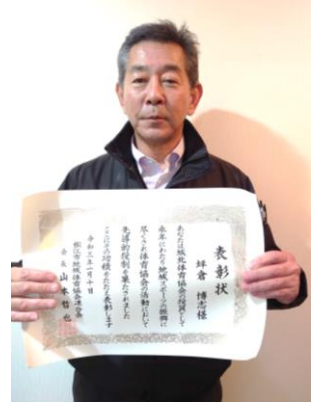 表彰状
坪倉 博志様
あなたは城北体育協会の役員として
永年にわたり地域スポーツの振興に
尽くされ体育協会の活動において
先導的役割を果たされました
功績をたたえ表彰します
令和三年一月十日
松江市地域体育協会連合会
会長 山本哲也